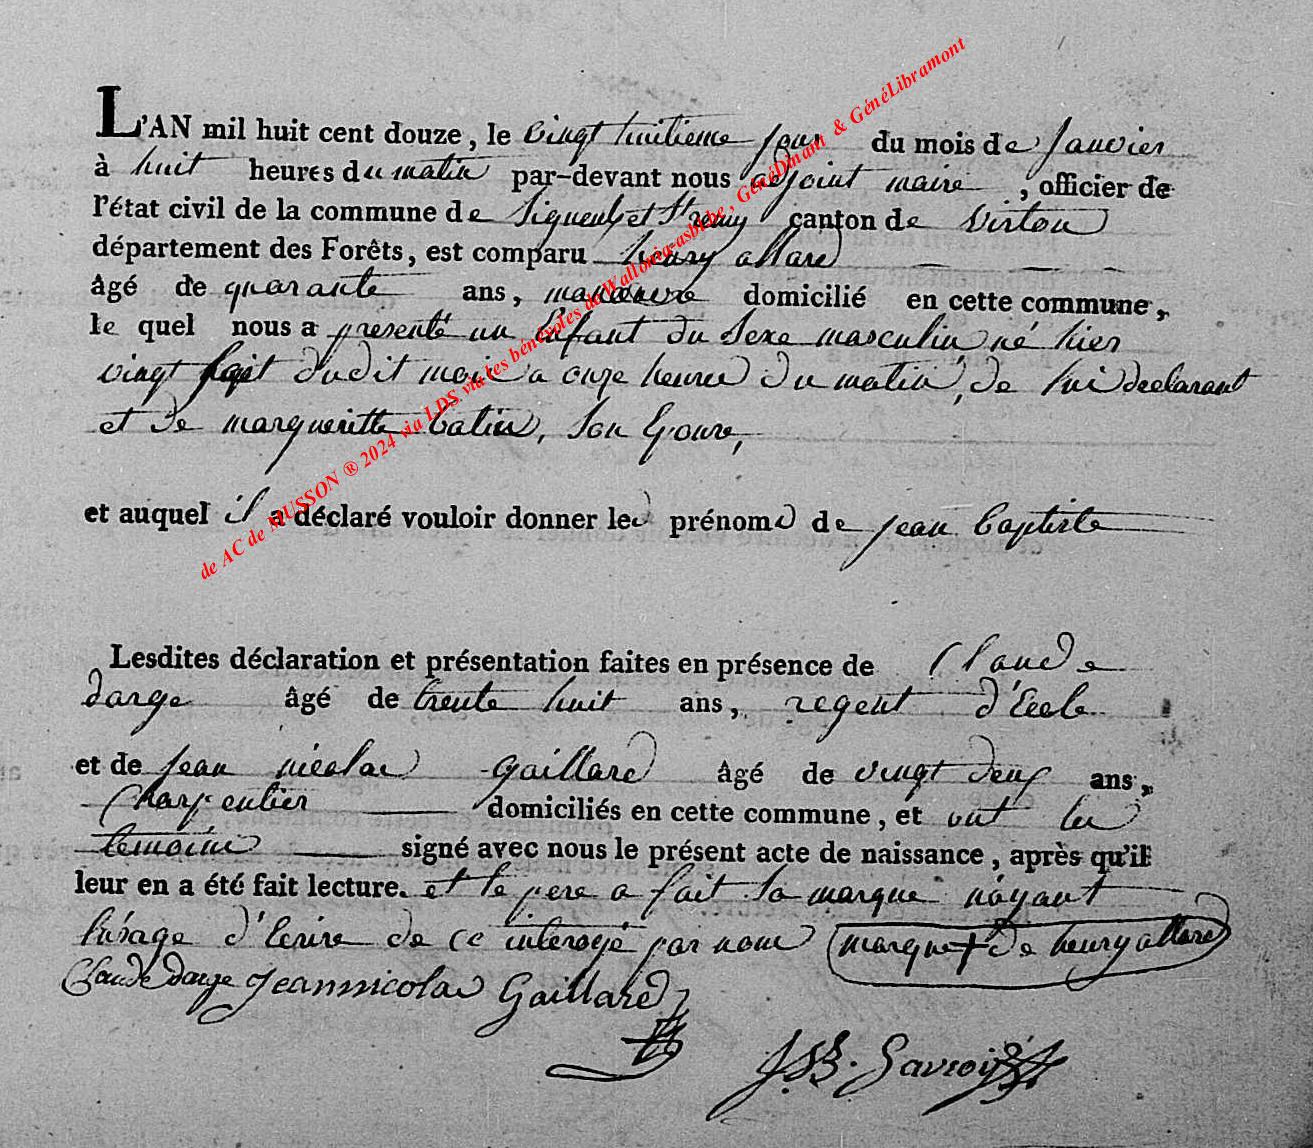 L'AN mil huit cent douze, le vingt huitieme jour du mois de Janvier
à huit heures du matin par-devant nous adjoint maire, officier de
l'état civil de la commune de Signeulx et St remy canton de Virton
département des Forêts, est comparu henry allard
âgé de quarante ans, manoeuvre domicilié en cette commune,
le quel nous a presenté un Enfant du Sexe masculin né hier
vingt sept dudit mois a onze heures du matin, de lui declarant
et de margueritte Son Epouse,
et auquel il a déclaré vouloir donner les prénoms de jean baptiste
Lesdites déclaration et présentation faites en présence de Claude
darge âgé de trente huit ans, regent d'Ecole
et de jean nicolas gaillard âgé de vingt deux ans,
Charpentier domiciliés en cette commune, et ont les
temoins signé avec nous le présent acte de naissance, après qu'il
leur en a été fait lecture. et le pere a fait sa marque n'ayant
l'usage d'Ecrire de ce interogé par nous marque + de henry allard
Claude darge Jeannicolas Gaillard
JB.
de AC de MUSSON ® 2024 via LDS via les bénévoles de Wallonia-asbl.be, GénéDinant & GénéLibramont